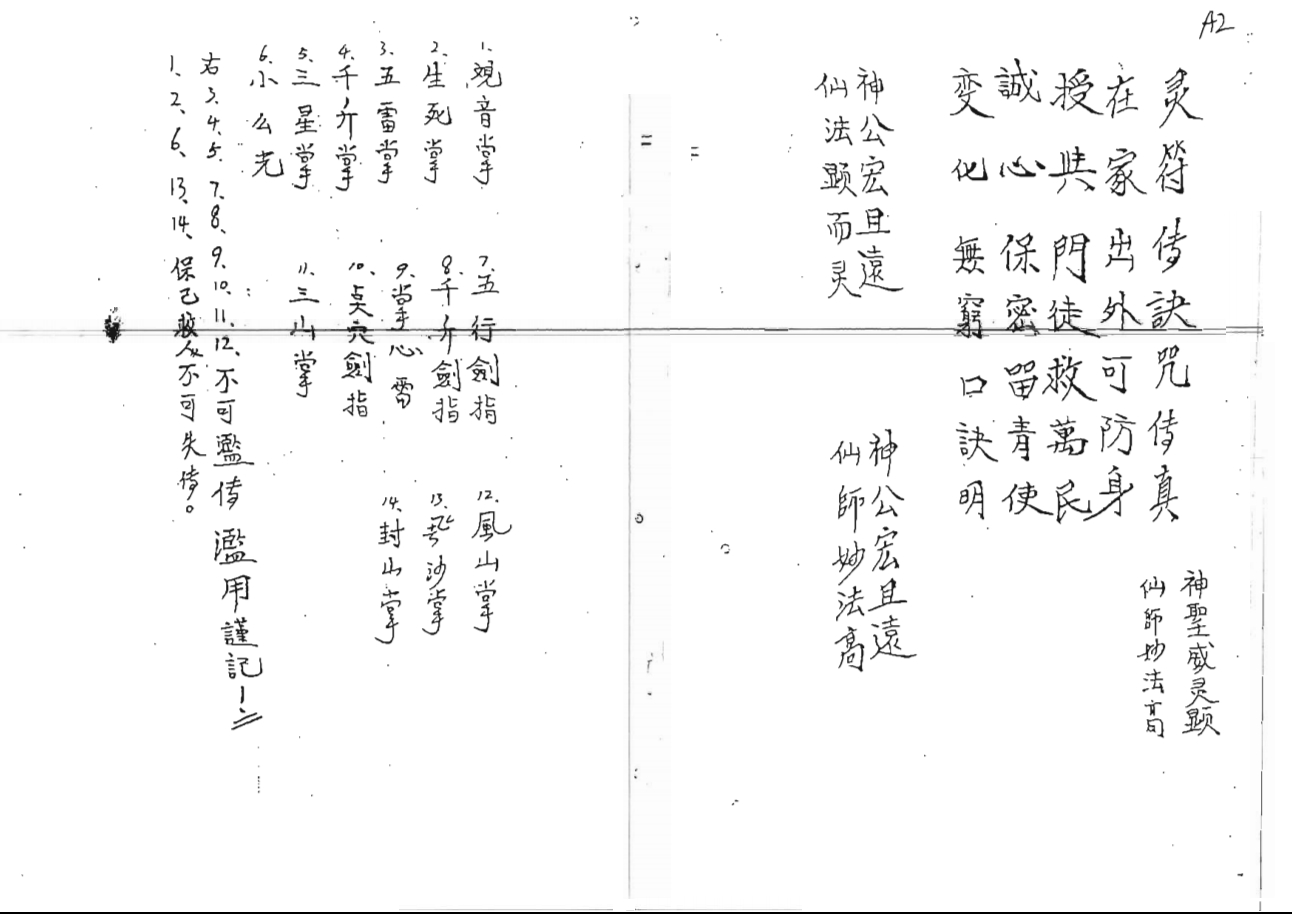 A2
灵符传訣咒传真
在家出外可防身
授共門徒救萬民
誠心保密留青使
变化無窮口訣明
神聖威灵顕
仙師妙法高
神公宏且遠
仙法顕而灵
神公宏且遠
仙師妙法高
1、观音掌
2、生死掌
3、五雷掌
4、千斤掌
5、三星掌
6、小么光
7、五行劍指
8、千斤劍指
9、掌心雷
10、点穴劍指
11、三山掌
12、風山掌
13、飞沙掌
14、封山掌
右3、4、5、7、8、9、10、11、12、不可濫传濫用謹記！
1、2、6、13、14、保己救人不可失传。